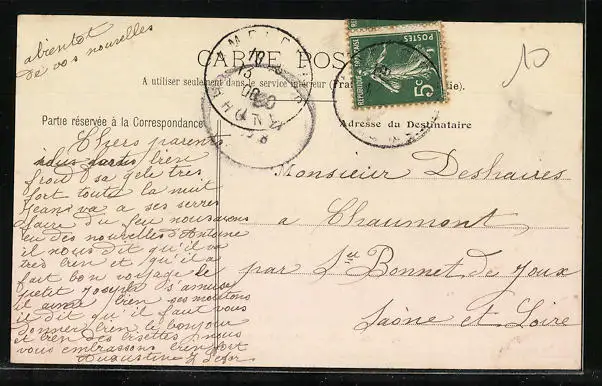 abientot
de vos nouvelles
CARTE POS
A utiliser seulement dans le service intérieur (Fra
ie).
POSTES
REPUBLIQUE FRANÇAISE
5c
10
Partie réservée à la Correspondance
Adresse du Destinataire
Chers parents
bien
froid sa gele tres
fort toute la nuit
Jean va a ses serres
faire du feu nous avons
eu des nouvelles d'Antoine
il nous dit qu'il va
tres bien et qu'il a
fait bon voyage le
petit Joseph s'amuse
il aime bien ses moutons
il dit qu'il faut vous
donner bien le bonjour
et bien des bisettes nous
vous embrassons bien fort
Augustine
Monsieur Deshaires
a Chaumont
par St Bonnet de Joux
Saône et Loire